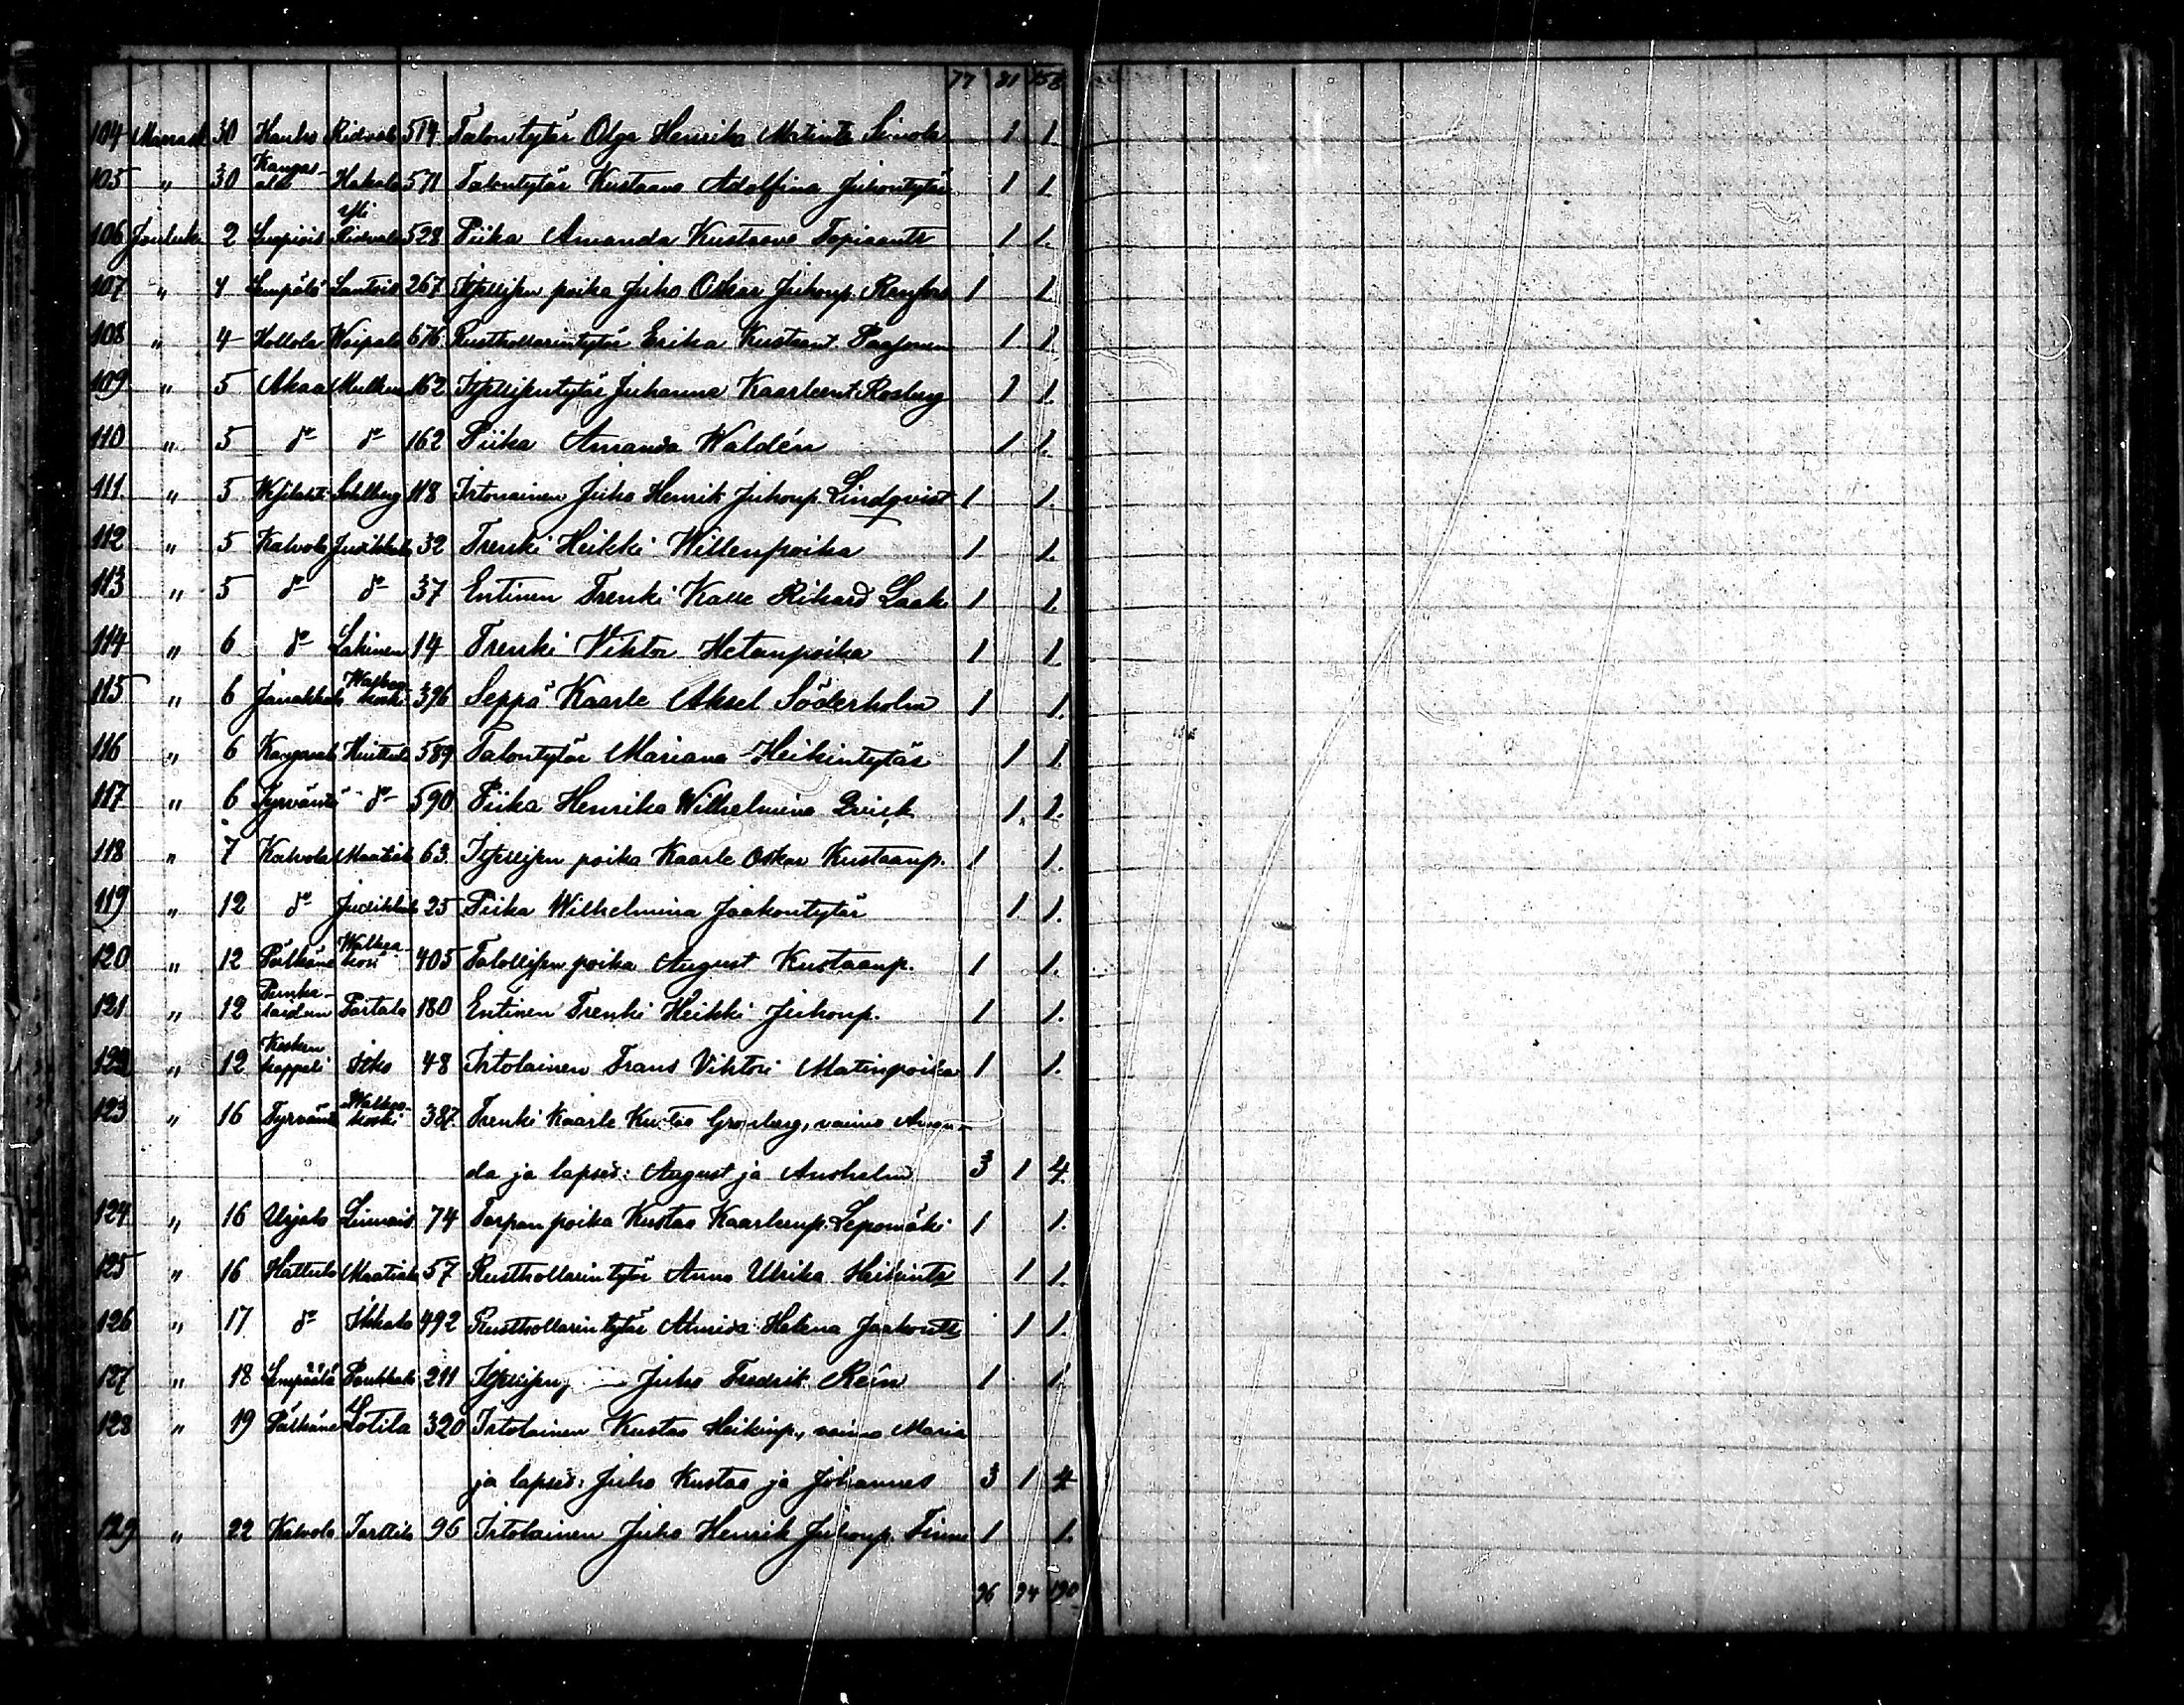 77 81 158
104 Marrask 30 Kauko Ridvala 514 Talontytär Olga Henrika Matintr Seinola 1 1.
105 " 30 Kangasala Hakala 571 Talontytär Kustaava Adolfina Juhontytär 1 1
106 Jouluk 2 Luopiois Yli Ridvala 528 Piika Amanda Kustaava Topiaantr 1 1.
107 " 4 Lempälä Lontois 267 Itsellisen poika Juho Oskar Juhonp. Renfors 1 1.
108 " 4 Hollola Woipala 676 Rusthollarintytär Erika Kustaant. Paajanen 1 1.
109 " 5 Akaa Mulkun 162 Itsellisentytär Juhanna Kaarleent. Rosberg 1 1.
110 " 5 do do 162 Piika Amanda Waldén 1 1.
111 " 5 Wesilahti Sahlberg 118 Irtonainen Juho Henrik Juhonp. Lindqvist 1 1.
112 " 5 Kalvola Jutikkala 32 Trenki Heikki Willenpoika 1 1.
113 " 5 do do 37 Entinen Trenki Kalle Rikard Laak 1 1.
114 " 6 do Lahinen 14 Trenki Viktor Hetanpoika 1 1.
115 " 6 Janakkala Walkeakoski 396 Seppä Kaarle Aksel Söderholm 1 1.
116 " 6 Kangasala Huittula 589 Talontytär Mariana Heikintytär 1 1.
117 " 6 Tyrväntö do 590 Piika Henrika Wilhelmina Qvick 1. 1.
118 " 7 Kalvola Maatiala 63. Itsellisen poika Kaarle Oskar Kustaanp. 1 1.
119 " 12 do Jutikkala 25 Piika Wilhelmina Jaakontytär 1. 1.
120 " 12 Pälkäne Walkeakoski 405 Talollisen poika August Kustaanp. 1 1.
121 " 12 Punkalaidun Partala 180 Entinen Trenki Heikki Juhonp. 1 1.
122 " 12 Kosken kappeli Itko 48 Irtolainen Frans Viktori Matinpoika 1 1.
123 " 16 Tyrväntö Walkeakoski 387. Trenki Kaarle Kustaa Grönberg, vaimo Aman-
da ja lapsed: August ja Anshelm 3 1 4.
124 " 16 Urjala Linnais 74 Torpan poika Kustaa Kaarleenp. Lepomäki 1 1.
125 " 16 Hattula Maatiala 57 Rusthollarintytär Anna Ulrika Heikintr 1 1.
126 " 17 do Ikkala 492 Rusthollarintytär Almida Helena Jaakontr 1 1.
127 " 18 Lempäälä Paukkola 211 Itsellisen Juho Fredrik Rein 1 1
128 " 19 Pälkäne Lotila 320 Irtolainen Kustaa Heikinp., vaimo Maria
ja lapsed: Juho Kustaa ja Johannes 3 1 4
129 " 22 Kalvola Tarttila 96 Irtolainen Juho Henrik Juhonp. Finne 1 1.
96 94 190